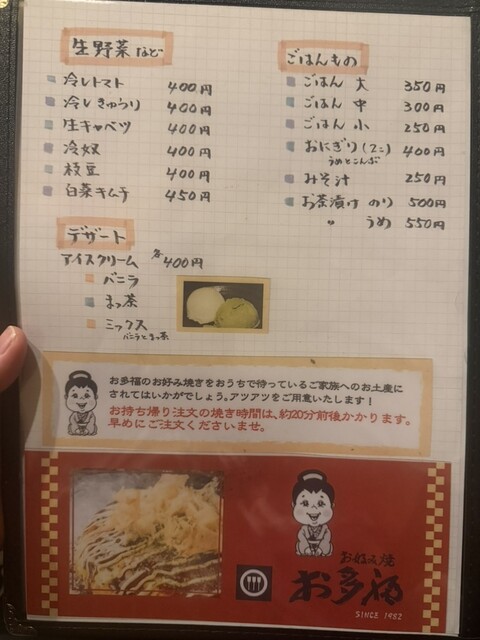 生野菜など
冷しトマト 400円
冷しきゅうり 400円
生キャベツ 400円
冷奴 400円
枝豆 400円
白菜キムチ 450円
デザート
アイスクリーム 各400円
バニラ
まっ茶
ミックス
バニラとまっ茶
ごはんもの
ごはん 大 350円
ごはん 中 300円
ごはん 小 250円
おにぎり(2こ) 400円
うめとこんぶ
みそ汁 250円
お茶漬け のり 500円
〃 うめ 550円
お多福のお好み焼きをおうちで待っているご家族へのお土産に
されてはいかがでしょう。アツアツをご用意いたします!
お持ち帰り注文の焼き時間は、約20分前後かかります。
早めにご注文くださいませ。
お好み焼
お多福
SINCE 1982